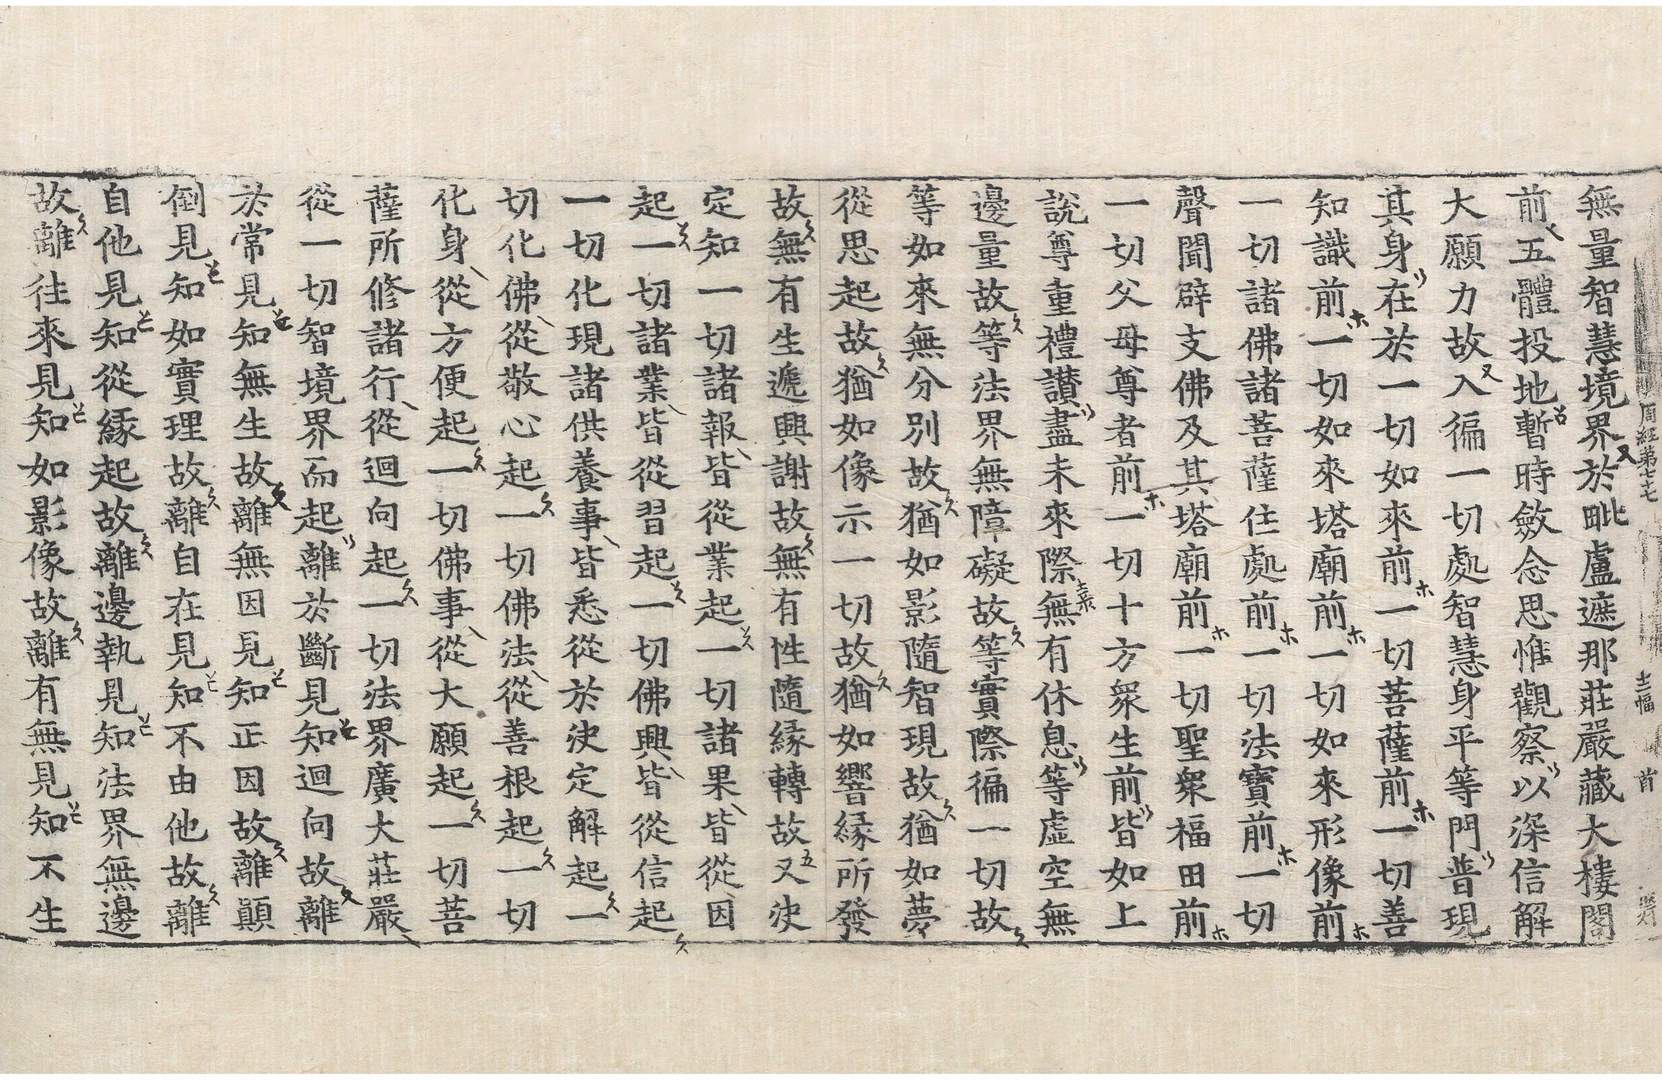 周經第七七 幅 首
無量智慧境界於毗盧遮那莊嚴藏大樓閣
前五體投地暫時斂念思惟觀察以深信解
大願力故入徧一切處智慧身平等門普現
其身在於一切如來前一切菩薩前一切善
知識前一切如來塔廟前一切如來形像前
一切諸佛諸菩薩住處前一切法寶前一切
聲聞辟支佛及其塔廟前一切聖衆福田前
一切父母尊者前一切十方衆生前皆如上
說尊重禮讃盡未來際無有休息等虛空無
邊量故等法界無障礙故等實際徧一切故
等如來無分別故猶如影隨智現故猶如夢
從思起故猶如像示一切故猶如響緣所發
故無有生遞興謝故無有性隨緣轉故又決
定知一切諸報皆從業起一切諸果皆從因
起一切諸業皆從習起一切佛興皆從信起
一切化現諸供養事皆悉從於決定解起一
切化佛從敬心起一切佛法從善根起一切
化身從方便起一切佛事從大願起一切菩
薩所修諸行從迴向起一切法界廣大莊嚴
從一切智境界而起離於斷見知迴向故離
於常見知無生故離無因見知正因故離顚
倒見知如實理故離自在見知不由他故離
自他見知從緣起故離邊執見知法界無邊
故離往來見知如影像故離有無見知不生